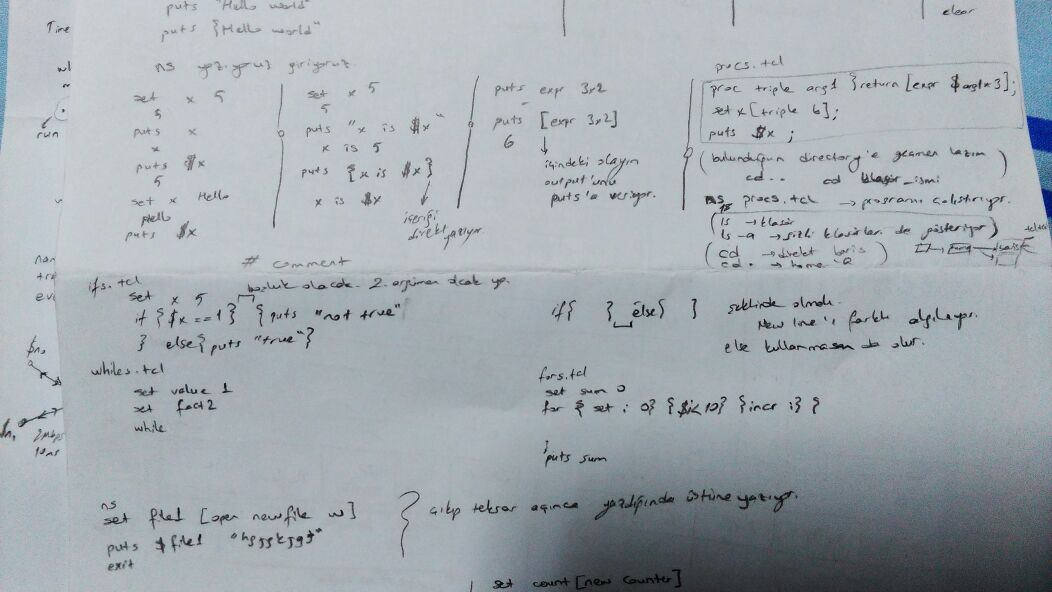 puts "Hello world"
puts {Hello world"
clear
Time
ns yazıyoruz giriyoruz.
set x 5
5
puts x
x
puts $x
5
set x Hello
Hello
puts $x
set x 5
5
puts "x is $x"
x is 5
puts {x is $x}
x is $x
içeriği
direkt yazıyor
puts expr 3x2
puts [expr 3x2]
6
içindeki olayın
output'unu
puts'a veriyor.
procs.tcl
proc triple arg1 {return [expr $arg1*3];
set x [triple 6];
puts $x ;
(bulunduğun directory'e geçmen lazım)
cd .. cd klasör_ismi
ns procs.tcl → programı çalıştırıyor.
(ls → klasör
ls -a → gizli klasörleri de gösteriyor)
(cd → direkt
cd .. → home 'a
run
# comment
ifs.tcl
boşluk olacak. 2. argüman olcak ya.
set x 5
if {$x==1} {puts "not true"
} else{puts "true"}
if{ }_else{ }
şeklinde olmalı.
New line'ı farklı algılıyor.
else kullanmasan da olur.
whiles.tcl
set value 1
set fact 2
while
fors.tcl
set sum 0
for { set i 0} {$i<10} {incr i} {
}
puts sum
2Mbps
10ms
ns
set file1 [open newfile w]
puts $file1 "hgjjkjgj"
exit
çıkıp tekrar açınca yazdığında üstüne yazıyor.
set count [new Counter]